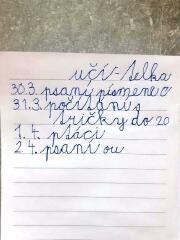 učí-telka
30.3. psaný písmene O
31.3. počítání s
tričky do 20
1. 4. ptáci
2 4. psaní ou